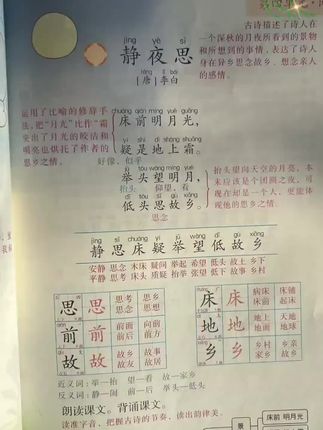 古诗描述了诗人在
一个深秋的月夜所看到的景物
和所想到的事情，表达了诗人
身在异乡思念故乡、想念亲人
的感情。
jìng yè sī
静夜思
táng lǐ bái
[唐]李白
运用了比喻的修辞手
法，把“月光”比作“霜”
突出了月光的皎洁和
明亮也烘托了作者的
思乡之情。
chuáng qián míng yuè guāng
床前明月光，
yí shì dì shàng shuāng
疑是地上霜。
好像，似乎
jǔ tóu wàng míng yuè
举头望明月，
抬头 仰望，看
dī tóu sī gù xiāng
低头思故乡。
思念
抬头望向天空的月亮，本
来应该是个团圆之夜，可
现在却是一个人，更能体
现他的思乡之情。
jìng sī chuáng yí jǔ wàng dī gù xiāng
静思床疑举望低故乡
安静 思念 木床 疑问 举起 希望 低头 故土 乡下
平静 思想 床头 质疑 抬举 张望 低下 故事 乡村
思 思 思考 思乡
思念 思想
前 前 前面 向前
前后 前方
故 故 故乡 故事
故友 故居
床 床 病床 床铺
床前 起床
地 地 地上 地面
天地 地球
乡 乡 乡村 乡亲
家乡 故乡
近义词：举—抬 望—看 故—家乡
反义词：静—闹 前—后 举头—低头
朗读课文。背诵课文。
读准字音，把握古诗的节奏，读出韵律美。
景
床前 明月光